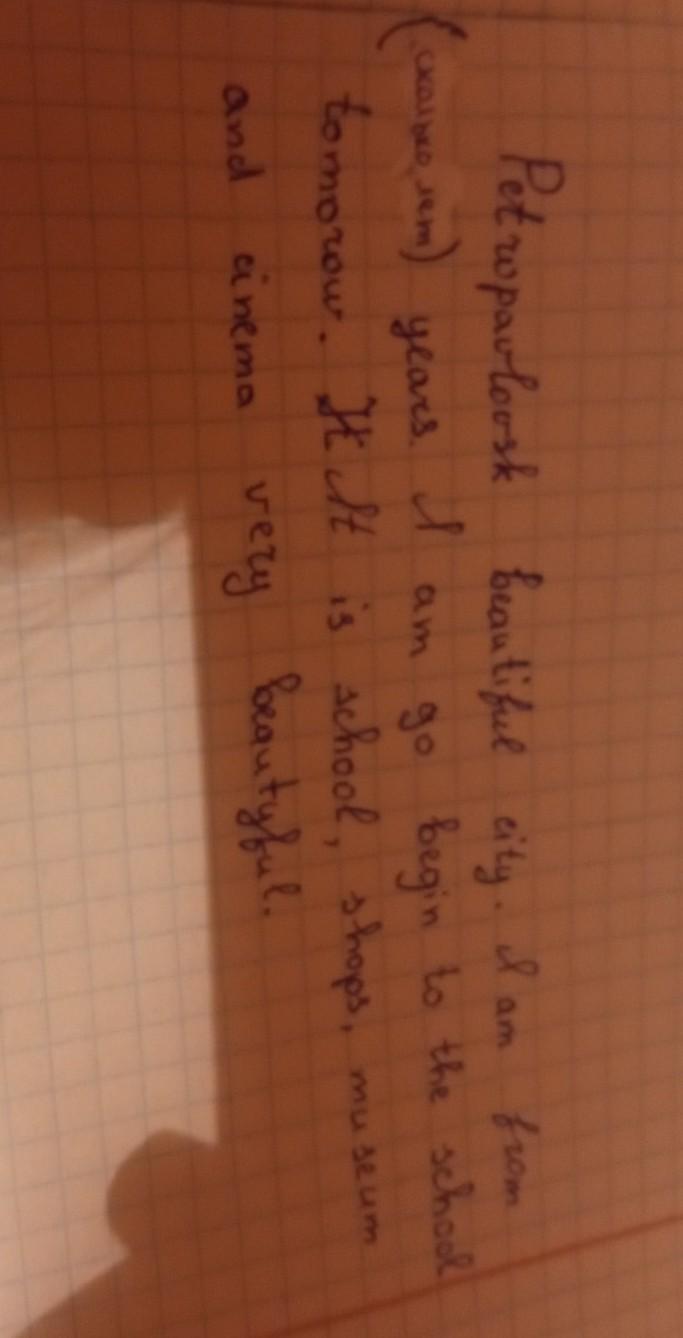 Petropavlovsk beautiful city. I am from
(сколько лет) years. I am go begin to the school
tomorow. It It is school, shops, museum
and cinema very beautyful.